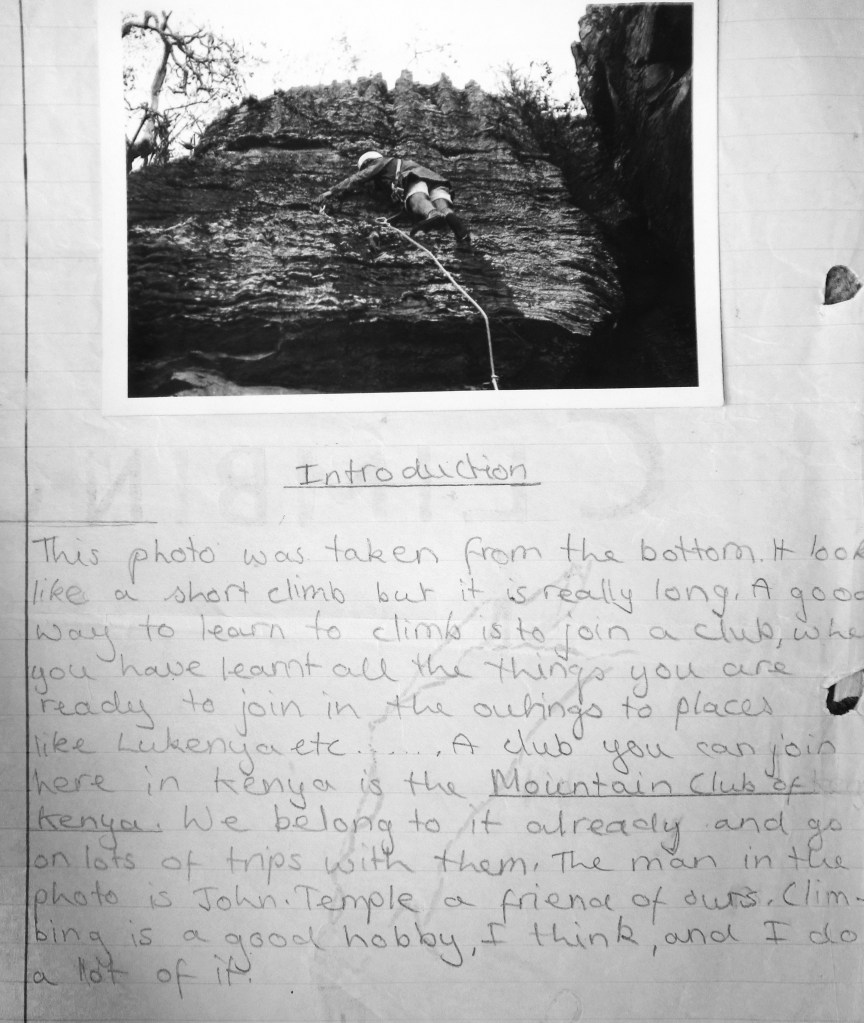 Introduction
This photo was taken from the bottom. It look
like a short climb but it is really long. A good
way to learn to climb is to join a club, whe
you have learnt all the things you are
ready to join in the outings to places
like Lukenya etc....... A club you can join
here in Kenya is the Mountain Club of
Kenya. We belong to it already and go
on lots of trips with them. The man in the
photo is John. Temple a friend of ours. Clim-
bing is a good hobby, I think, and I do
a lot of it.